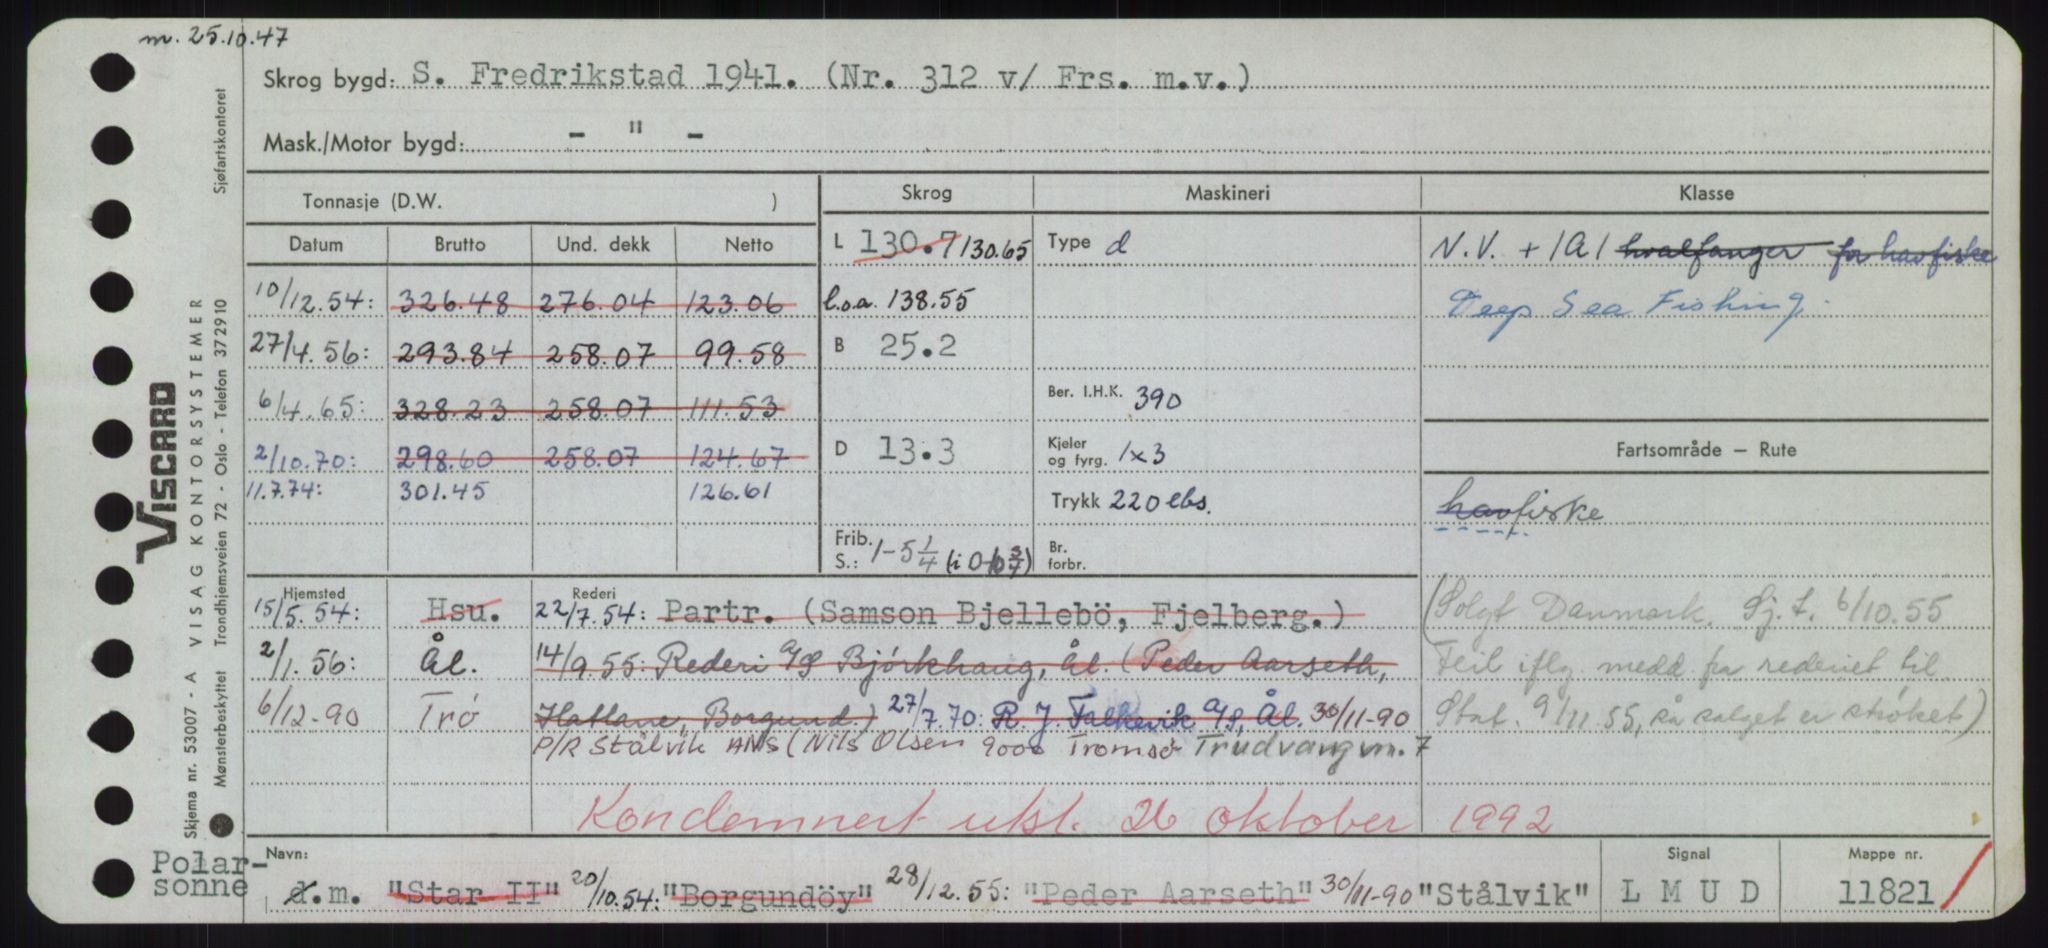 m. 25.10.47
Skrog bygd: S. Fredrikstad 1941. (Nr. 312 v/ Frs. m.v.)
Mask./Motor bygd: - " -
Tonnasje (D.W. )
Skrog
Maskineri
Klasse
Datum Brutto Und. dekk Netto
L 130.7 130.65
Type d
N.V. + 1A1 hvalfanger for havfiske
10/12.54: 326.48 276.04 123.06
l.o.a. 138.55
Deep Sea Fishing.
27/4.56: 293.84 258.07 99.58
B 25.2
6/4.65: 328.23 258.07 111.53
Ber. I.H.K. 390
2/10.70: 298.60 258.07 124.67
D 13.3
Kjeler og fyrg. 1x3
Fartsområde – Rute
11.7.74: 301.45 126.61
Trykk 220 lbs.
havfiske
Frib. S.: 1-5 1/4 (i 0-10 3/4)
Br. forbr.
Hjemsted
Rederi
15/5.54: Hsu. 22/7.54: Partr. (Samson Bjellebö, Fjelberg.)
(Solgt Danmark. Sj.f. 6/10.55
2/1.56: Ål. 14/9.55: Rederi A/S Björkhaug, Ål. (Peder Aarseth,
Feil iflg. medd. fra rederiet til
6/12-90 Trö Hatlane, Borgund.) 27/7.70: R J. Falkevik A/S, Ål. 30/11-90
Stat. 9/11.55, så salget er strøket)
P/R Stålvik ANS (Nils Olsen 9000 Tromsö Trudvangvn. 7
Kondemnert utsl. 26 oktober 1992
Polar-
sonne
Navn:
d.m. "Star II" 20/10.54: "Borgundöy" 28/12.55: "Peder Aarseth" 30/11-90 "Stålvik"
Signal
L M U D
Mappe nr.
11821
VISCARD
Skjema nr. 53007 - A VISAG KONTORSYSTEMER
Mønsterbeskyttet Trondhjemsveien 72 - Oslo - Telefon 372910 Sjøfartskontoret